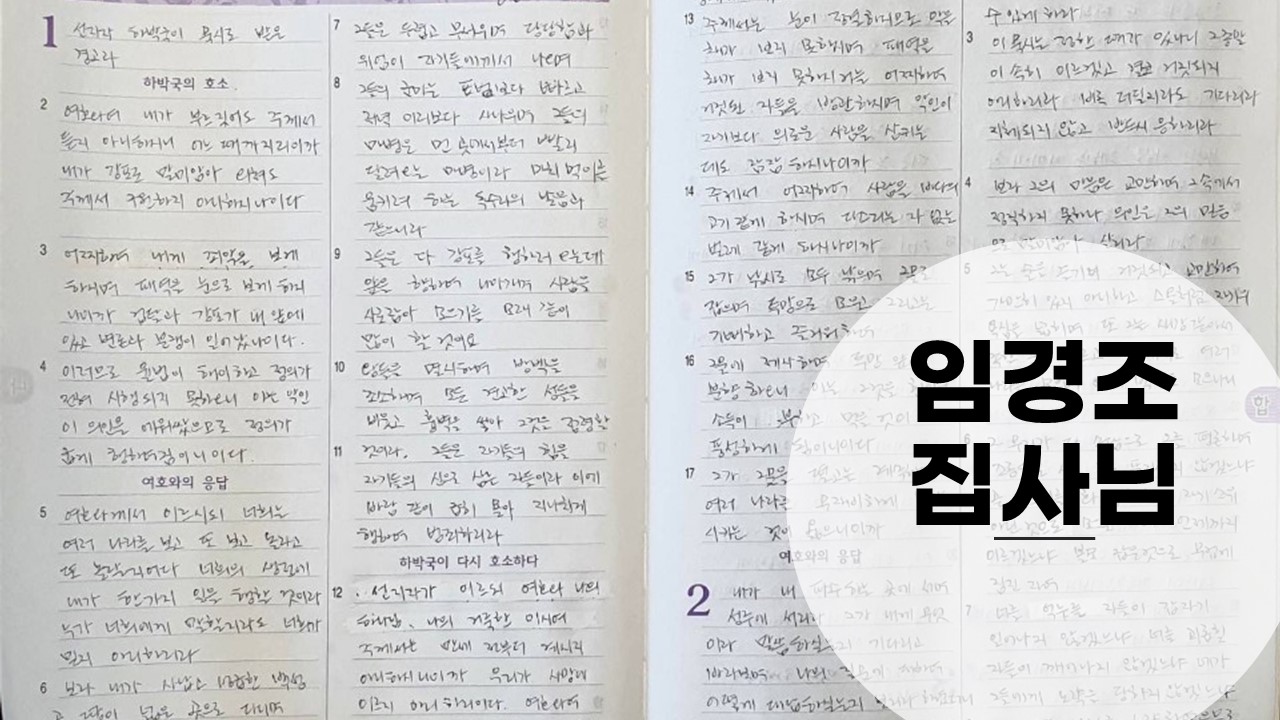 1 선지자 하박국이 묵시로 받은
경고라
하박국의 호소
2 여호와여 내가 부르짖어도 주께서
듣지 아니하시니 어느 때까지리이까
내가 강포로 말미암아 외쳐도
주께서 구원하지 아니하시나이다
3 어찌하여 내게 죄악을 보게
하시며 패역을 눈으로 보게 하시
나이까 겁탈과 강포가 내 앞에
있고 변론과 분쟁이 일어났나이다.
4 이러므로 율법이 해이하고 정의가
전혀 시행되지 못하오니 이는 악인
이 의인을 에워쌌으므로 정의가
굽게 행하여짐이니이다.
여호와의 응답
5 여호와께서 이르시되 너희는
여러 나라를 보고 또 보고 놀라고
또 놀랄지어다 너희의 생전에
내가 한가지 일을 행할 것이라
누가 너희에게 말할지라도 너희가
믿지 아니하리라
6 보라 내가 사납고 성급한 백성
땅이 넓은 곳으로 다니며
7 그들은 두렵고 무서우며 당당함과
위엄이 자기들에게서 나오며
8 그들의 군마는 표범보다 빠르고
저녁 이리보다 사나우며 그들의
마병은 먼 곳에서부터 빨리
달려오는 마병이라 마치 먹이를
움키려 하는 독수리의 날음과
같으니라
9 그들은 다 강포를 행하러 오는데
앞을 향하여 나아가며 사람을
사로잡아 모으기를 모래 같이
많이 할 것이요
10 왕들을 멸시하며 방백을
조소하며 모든 견고한 성들을
비웃고 흉벽을 쌓아 그것을 점령할
11 것이라, 그들은 자기들의 힘을
자기들의 신으로 삼는 자들이라 이에
바람 같이 급히 몰아 지나치게
행하여 범죄하리라
하박국이 다시 호소하다
12 선지자가 이르되 여호와 나의
하나님, 나의 거룩한 이시여
주께서는 만세 전부터 계시지
아니하시니이까 우리가 사망에
이르지 아니하리이다. 여호와여
13 주께서는 눈이 정결하시므로 악을
차마 보지 못하시며 패역을
차마 보지 못하시거늘 어찌하여
거짓된 자들을 방관하시며 악인이
자기보다 의로운 사람을 삼키는
데도 잠잠 하시나이까
14 주께서 어찌하여 사람을 바다의
고기 같게 하시며 다스리는 자 없는
벌레 같게 하시나이까
15 그가 낚시로 모두 낚으며 그물로
잡으며 투망으로 모으고 그리고는
기뻐하고 즐거워하여
16 그물에 제사하며 투망 앞
분향 하오니 이는 그것을
소득이 풍부하고 먹을 것이
풍성하게 됨이니이다
17 그가 그물을 떨고는
여러 나라를 무자비하게
시키는 것이 옳으니이까
여호와의 응답
2 내가 내 파수하는 곳에 서며
성루에 서리라 그가 내게 무엇
이라 말씀하실는지 기다리고
바라보며 나의 질문에
어떻게 대답하실는지 보리라
수 있게 하라
3 이 묵시는 정한 때가 있나니 그 종말
이 속히 이르겠고 결코 거짓되지
아니하리라 비록 더딜지라도 기다리라
지체되지 않고 반드시 응하리라
4 보라 그의 마음은 교만하며 그 속에서
정직하지 못하나 의인은 그의 믿음
으로 말미암아 살리라
5 그는 술을 즐기며 거짓되고 교만하여
가만히 있지 아니하고 스올처럼 자기의
욕심을 넓히며 또 그는 사망 같아서
여러
모으나니
6
이르겠느냐 볼모 잡은것으로 무겁게
짐진 자여
7 너를 억누를 자들이 갑자기
일어나지 않겠느냐 너를 괴롭힐
자들이 깨어나지 않겠느냐 네가
그들에게 노략을 당하지 않겠느냐
합
임경조
집사님